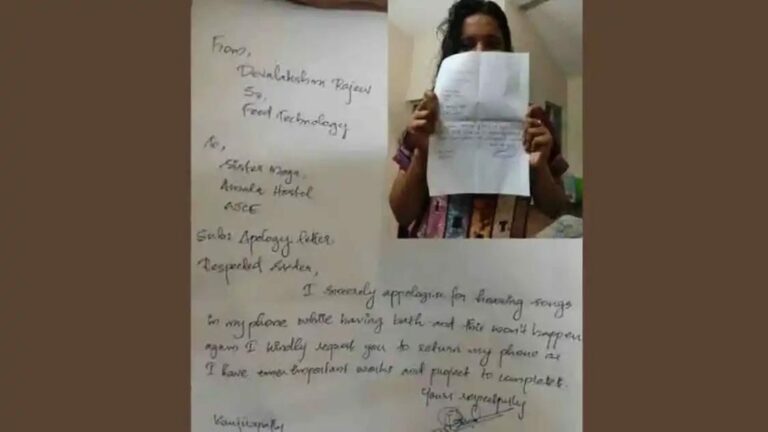 From,
Devalekshmi Rajeev
S5,
Food Technology
To,
Sister Maya,
Amala Hostel
AJCE
Sub: Apology letter
Respected Sister,
I sincerely appologise for hearing songs
in my phone while having bath and this won't happen
again I kindly request you to return my phone as
I have important works and project to complete.
Yours respectfully
Kanjirapally